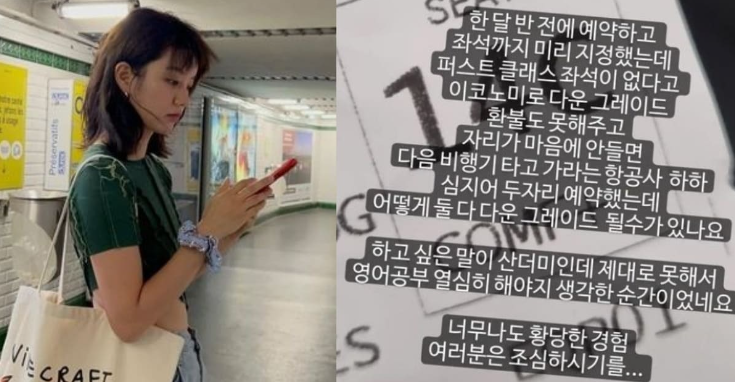 Préservatifs
CRAFT
SEAT
한 달 반 전에 예약하고
좌석까지 미리 지정했는데
퍼스트 클래스 좌석이 없다고
이코노미로 다운 그레이드
환불도 못해주고
자리가 마음에 안들면
다음 비행기 타고 가라는 항공사 하하
심지어 두자리 예약했는데
어떻게 둘 다 다운 그레이드 될수가 있나요
하고 싶은 말이 산더미인데 제대로 못해서
영어공부 열심히 해야지 생각한 순간이었네요
너무나도 황당한 경험
여러분은 조심하시기를...